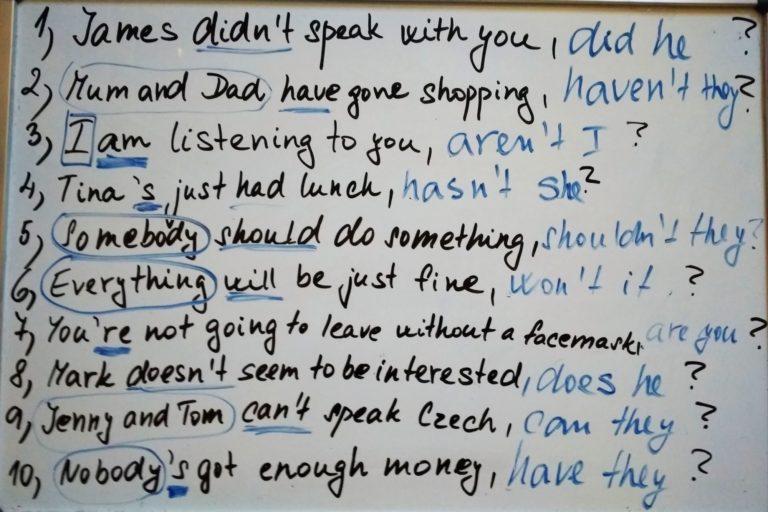 1, James didn't speak with you, did he ?
2, Mum and Dad have gone shopping, haven't they?
3, I am listening to you, aren't I ?
4, Tina's just had lunch, hasn't she?
5, Somebody should do something, shouldn't they?
6, Everything will be just fine, won't it ?
7, You're not going to leave without a facemask, are you ?
8, Mark doesn't seem to be interested, does he ?
9, Jenny and Tom can't speak Czech, can they ?
10, Nobody's got enough money, have they ?